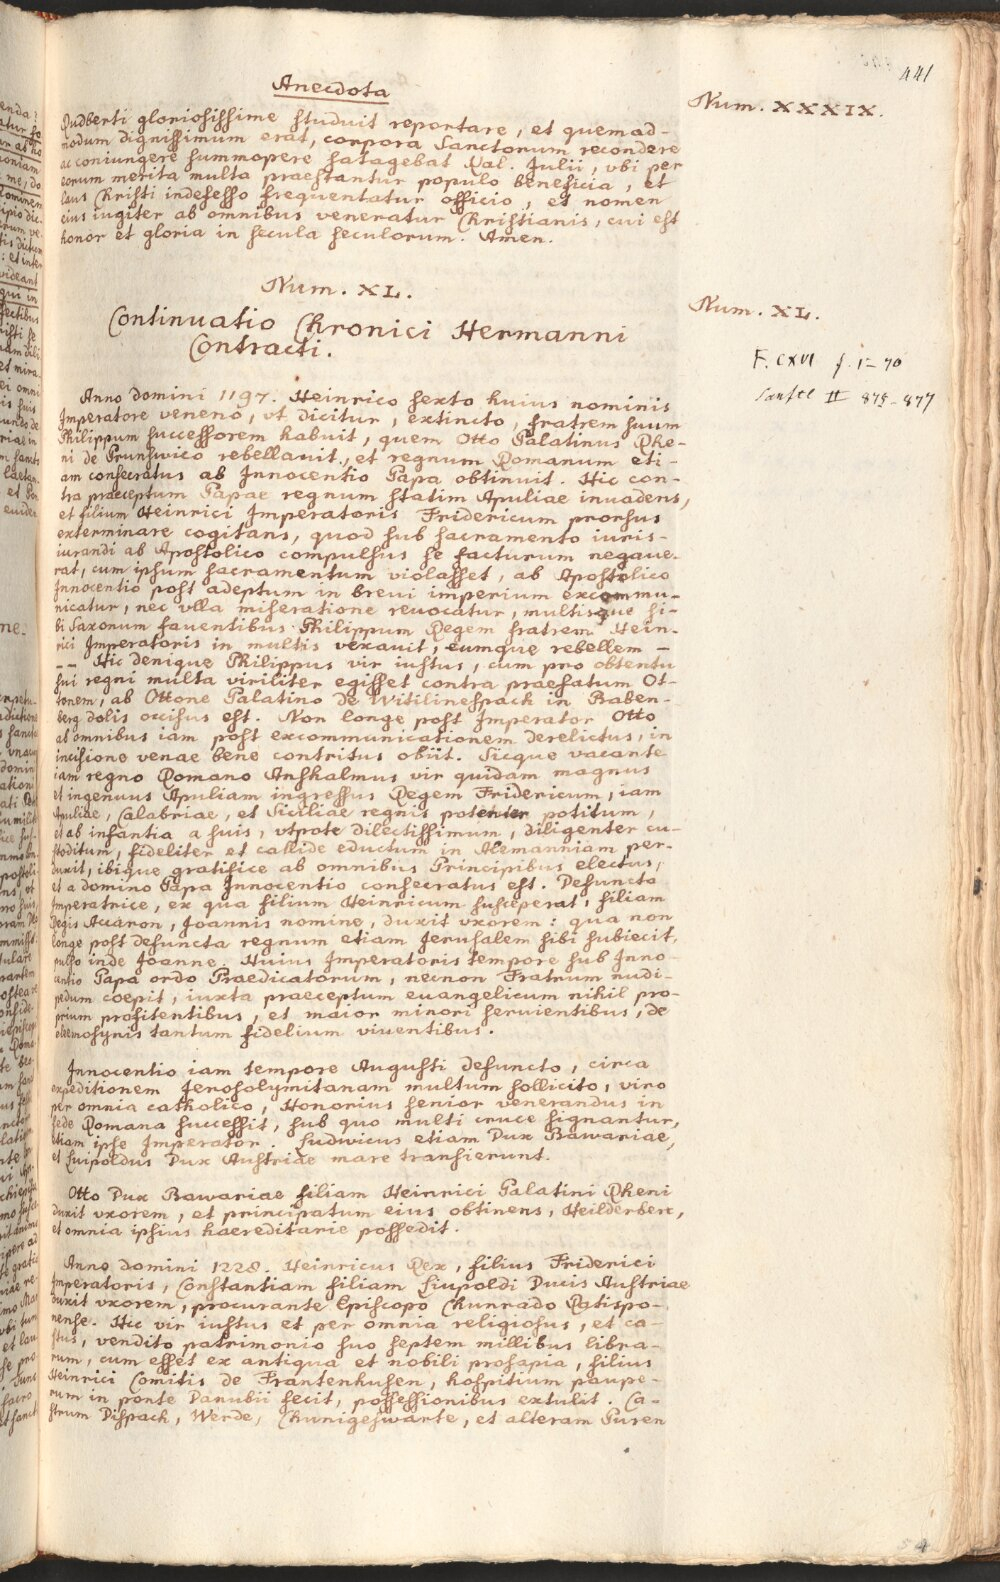 441
Anecdota
Num. XXXIX.
Rudberti gloriosissime studuit reportare, et quemad-
modum dignissimum erat, corpora Sanctorum recondere
ac coniungere summopere satagebat Kal. Julii, vbi per
eorum merita multa praestantur populo beneficia, et
laus Christi indefesso frequentatur officio, et nomen
eius iugiter ab omnibus veneratur Christianis, cui est
honor et gloria in secula seculorum. Amen.
Num. XL.
Num. XL.
Continuatio Chronici Hermanni
Contracti.
F. CXVI f. 1-70
II 875-877
Anno domini 1197. Heinrico sexto huius nominis
Imperatore veneno, vt dicitur, extincto, fratrem suum
Philippum successorem habuit, quem Otto Palatinus Rhe-
ni de Prunswico rebellauit, et regnum Romanum eti-
am consecratus ab Innocentio Papa obtinuit. Hic con-
tra praeceptum Papae regnum statim Apuliae inuadens,
et filium Heinrici Imperatoris Fridericum prorsus
exterminare cogitans, quod sub sacramento iuris-
iurandi ab Apostolico compulsus se facturum negaue-
rat, cum ipsum sacramentum violasset, ab Apostolico
Innocentio post adeptum in breui imperium excommu-
nicatur, nec vlla miseratione reuocatur, multisque si-
bi Saxonum fauentibus Philippum Regem fratrem Hein-
rici Imperatoris in multis vexauit, eumque rebellem -
-- Hic denique Philippus vir iustus, cum pro obtentu
sui regni multa viriliter egisset contra praefatum Ot-
tonem, ab Ottone Palatino de Witilinespach in Baben-
berg dolis occisus est. Non longe post Imperator Otto
ab omnibus iam post excommunicationem derelictus, in
incisione venae bene contritus obiit. Sicque vacante
iam regno Romano Anshalmus vir quidam magnus
et ingenuus Apuliam ingressus Regem Fridericum, iam
Apuliae, Calabriae, et Siciliae regnis potenter potitum,
et ab infantia a suis, vtpote dilectissimum, diligenter cu-
stoditum, fideliter et callide eductum in Alemanniam per-
duxit, ibique gratifice ab omnibus Principibus electus,
et a domino Papa Innocentio consecratus est. Defuncta
Imperatrice, ex qua filium Heinricum susceperat, filiam
Regis Accaron, Joannis nomine, duxit vxorem: qua non
longe post defuncta regnum etiam Jerusalem sibi subiecit,
pulso inde Joanne. Huius Imperatoris tempore sub Inno-
centio Papa ordo Praedicatorum, necnon Fratrum nudi-
pedum coepit, iuxta praeceptum euangelicum nihil pro-
prium profitentibus, et maior minori seruientibus, de
eleemosynis tantum fidelium viuentibus.
Innocentio iam tempore Augusti defuncto, circa
expeditionem Jerosolymitanam multum sollicito, viro
per omnia catholico, Honorius senior venerandus in
sede Romana successit, sub quo multi cruce signantur,
etiam ipse Imperator. Ludwicus etiam Dux Bawariae,
et Luipoldus Dux Austriae mare transierunt.
Otto Dux Bawariae filiam Heinrici Palatini Rheni
duxit vxorem, et principatum eius obtinens, Heilderberc,
et omnia ipsius haereditarie possedit.
Anno domini 1228. Heinricus Rex, filius Friderici
Imperatoris, Constantiam filiam Liupoldi Ducis Austriae
duxit vxorem, procurante Episcopo Chunrado Ratispo-
nense. Hic vir iustus et per omnia religiosus, et ca-
stus, vendito patrimonio suo septem millibus libra-
rum, cum esset ex antiqua et nobili prosapia, filius
Heinrici Comitis de Frantenhusen, hospitium paupe-
rum in ponte Danubii fecit, possessionibus extulit. Ca-
strum Dispach, Werde, Chunigeswarte, et alteram Puren